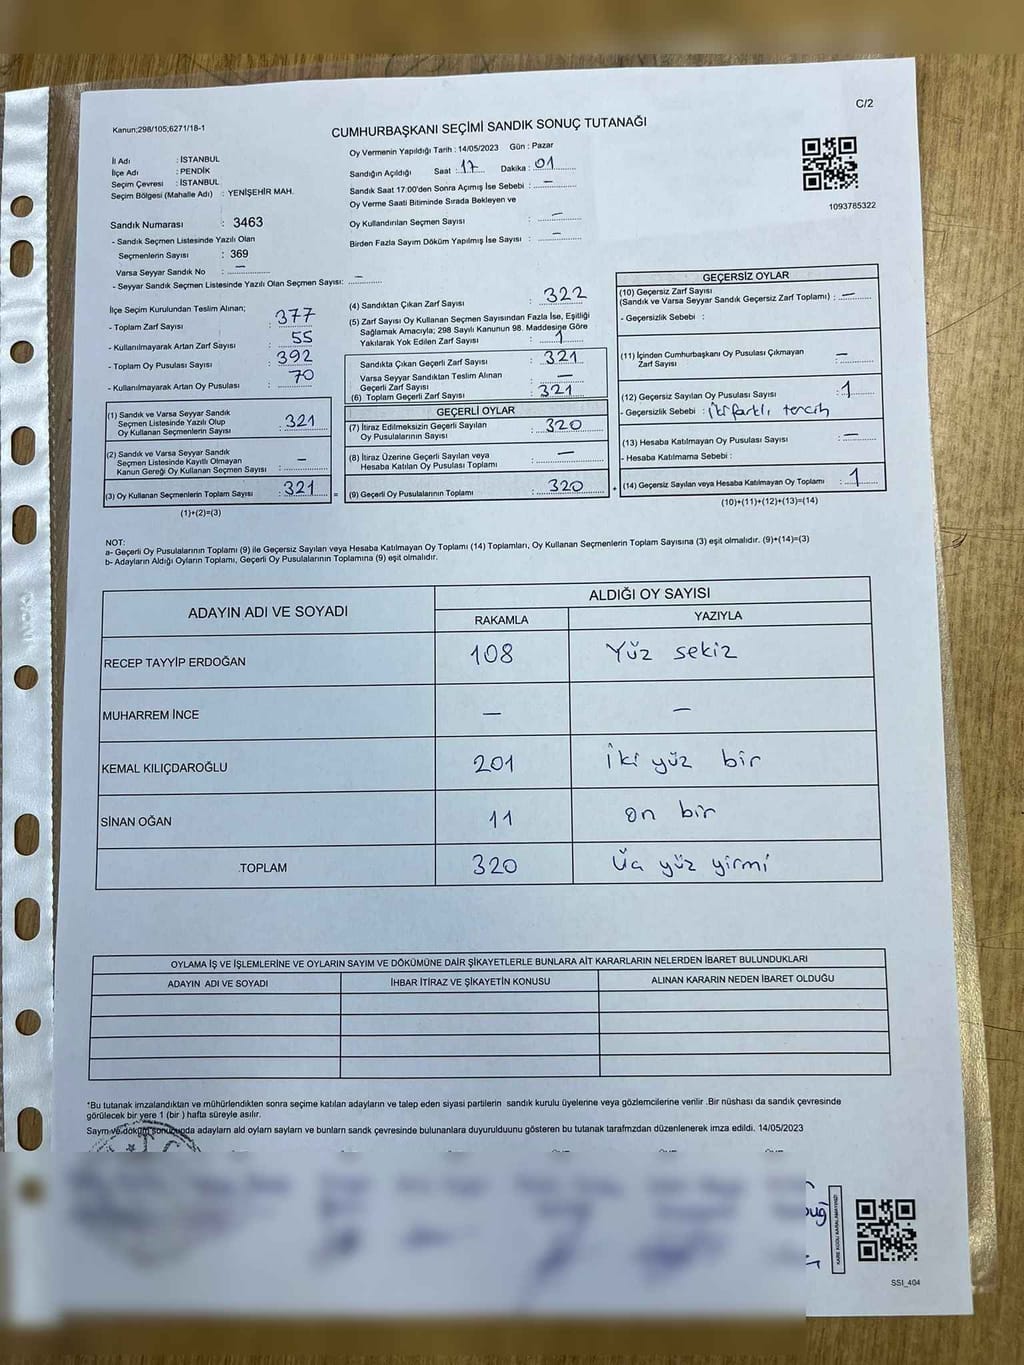 C/2
Kanun;298/105;6271/18-1
CUMHURBAŞKANI SEÇİMİ SANDIK SONUÇ TUTANAĞI
İl Adı : İSTANBUL
İlçe Adı : PENDİK
Seçim Çevresi : İSTANBUL
Seçim Bölgesi (Mahalle Adı) : YENİŞEHİR MAH.
Sandık Numarası : 3463
- Sandık Seçmen Listesinde Yazılı Olan
Seçmenlerin Sayısı : 369
Varsa Seyyar Sandık No : —
- Seyyar Sandık Seçmen Listesinde Yazılı Olan Seçmen Sayısı: —
Oy Vermenin Yapıldığı Tarih : 14/05/2023 Gün : Pazar
Sandığın Açıldığı Saat : 17 Dakika : 01
Sandık Saat 17:00'den Sonra Açımış İse Sebebi : —
Oy Verme Saati Bitiminde Sırada Bekleyen ve
Oy Kullandırılan Seçmen Sayısı : —
Birden Fazla Sayım Döküm Yapılmış İse Sayısı : —
1093785322
İlçe Seçim Kurulundan Teslim Alınan;
- Toplam Zarf Sayısı : 377
- Kullanılmayarak Artan Zarf Sayısı : 55
- Toplam Oy Pusulası Sayısı : 392
- Kullanılmayarak Artan Oy Pusulası : 70
(1) Sandık ve Varsa Seyyar Sandık
Seçmen Listesinde Yazılı Olup
Oy Kullanan Seçmenlerin Sayısı : 321
(2) Sandık ve Varsa Seyyar Sandık
Seçmen Listesinde Kayıtlı Olmayan
Kanun Gereği Oy Kullanan Seçmen Sayısı : —
(3) Oy Kullanan Seçmenlerin Toplam Sayısı : 321 =
(1)+(2)=(3)
(4) Sandıktan Çıkan Zarf Sayısı : 322
(5) Zarf Sayısı Oy Kullanan Seçmen Sayısından Fazla İse, Eşitliği
Sağlamak Amacıyla; 298 Sayılı Kanunun 98. Maddesine Göre
Yakılarak Yok Edilen Zarf Sayısı : 1
Sandıkta Çıkan Geçerli Zarf Sayısı : 321
Varsa Seyyar Sandıktan Teslim Alınan
Geçerli Zarf Sayısı : —
(6) Toplam Geçerli Zarf Sayısı : 321
GEÇERLİ OYLAR
(7) İtiraz Edilmeksizin Geçerli Sayılan
Oy Pusulalarının Sayısı : 320
(8) İtiraz Üzerine Geçerli Sayılan ve
Hesaba Katılan Oy Pusulası Toplamı : —
(9) Geçerli Oy Pusulalarının Toplamı : 320 +
GEÇERSİZ OYLAR
(10) Geçersiz Zarf Sayısı
(Sandık ve Varsa Seyyar Sandık Geçersiz Zarf Toplamı) : —
- Geçersizlik Sebebi :
(11) İçinden Cumhurbaşkanı Oy Pusulası Çıkmayan
Zarf Sayısı : —
(12) Geçersiz Sayılan Oy Pusulası Sayısı : 1
- Geçersizlik Sebebi : iki farklı tercih
(13) Hesaba Katılmayan Oy Pusulası Sayısı : —
- Hesaba Katılmama Sebebi :
(14) Geçersiz Sayılan veya Hesaba Katılmayan Oy Toplamı : 1
(10)+(11)+(12)+(13)=(14)
NOT:
a- Geçerli Oy Pusulalarının Toplamı (9) ile Geçersiz Sayılan veya Hesaba Katılmayan Oy Toplamı (14) Toplamları, Oy Kullanan Seçmenlerin Toplam Sayısına (3) eşit olmalıdır. (9)+(14)=(3)
b- Adayların Aldığı Oyların Toplamı, Geçerli Oy Pusulalarının Toplamına (9) eşit olmalıdır.
ADAYIN ADI VE SOYADI ALDIĞI OY SAYISI
RAKAMLA YAZIYLA
RECEP TAYYİP ERDOĞAN 108 Yüz sekiz
MUHARREM İNCE — —
KEMAL KILIÇDAROĞLU 201 İki yüz bir
SİNAN OĞAN 11 on bir
TOPLAM 320 Üç yüz yirmi
OYLAMA İŞ VE İŞLEMLERİNE VE OYLARIN SAYIM VE DÖKÜMÜNE DAİR ŞİKAYETLERLE BUNLARA AİT KARARLARIN NELERDEN İBARET BULUNDUKLARI
ADAYIN ADI VE SOYADI İHBAR İTİRAZ VE ŞİKAYETİN KONUSU ALINAN KARARIN NEDEN İBARET OLDUĞU
"Bu tutanak imzalandıktan ve mühürlendikten sonra seçime katılan adayların ve talep eden siyasi partilerin sandık kurulu üyelerine veya gözlemcilerine verilir .Bir nüshası da sandık çevresinde
görülecek bir yere 1 (bir ) hafta süreyle asılır.
Sayım ve döküm sonucunda adayların ald oyların sayların ve bunların sandk çevresinde bulunanlara duyurulduunu gösteren bu tutanak tarafmzdan düzenlenerek imza edildi. 14/05/2023
SSI_404